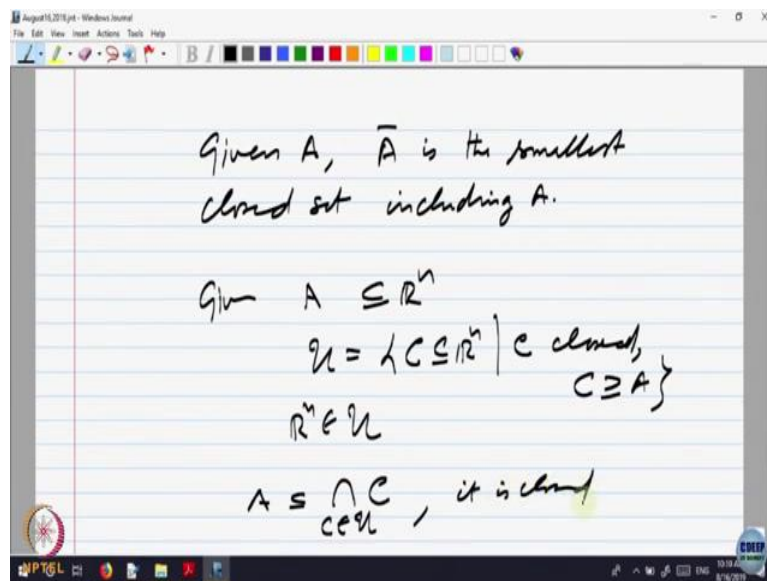 August16,2019.jnt - Windows Journal
File Edit View Insert Actions Tools Help
B I
Given A, Ā is the smallest
closed set including A.
Given A ⊆ ℝⁿ
𝒰 = { C ⊆ ℝⁿ | C closed,
C ⊇ A }
ℝⁿ ∈ 𝒰
A ⊆ ⋂ C , it is closed
C∈𝒰
NPTEL
ENG
8/16/2019
CDEEP